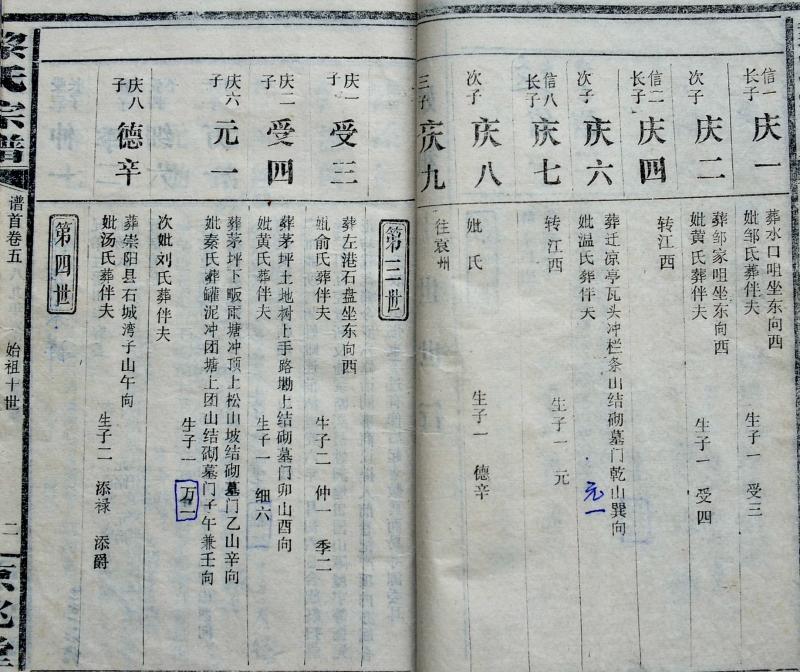 信一长子
庆一
葬水口咀坐东向西
妣邹氏葬伴夫
生子一 受三
次子
庆二
葬邹家咀坐东向西
妣黄氏葬伴夫
生子一 受四
信二长子
庆四
转江西
次子
庆六
葬迁凉亭瓦头冲栏条山结砌墓门乾山巽向
妣温氏葬伴夫
元一
信八长子
庆七
转江西
生子一 元
次子
庆八
妣氏
生子一 德辛
三子
庆九
往袁州
第三世
庆一子
受三
葬左港石盘坐东向西
妣俞氏葬伴夫
生子二 仲一 季二
庆二子
受四
葬茅坪土地树上手路墈上结砌墓门卯山酉向
妣黄氏葬伴夫
生子一 细六
庆六子
元一
葬茅坪下畈雨塘冲顶上松山坡结砌墓门乙山辛向
妣秦氏葬罐泥冲团塘上团山结砌墓门子午兼壬向
生子一 万二
次妣刘氏葬伴夫
庆八子
德辛
葬崇阳县石城湾子山午向
妣汤氏葬伴夫
生子二 添禄 添爵
第四世
黎氏宗谱
谱首卷五
始祖十世
二
京兆堂